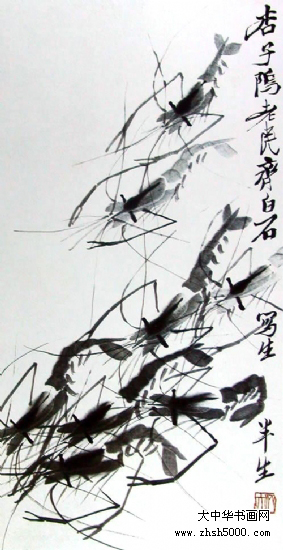 杏子隖老民齊白石
寫生
半生
大中华书画网
www.zhsh5000.com